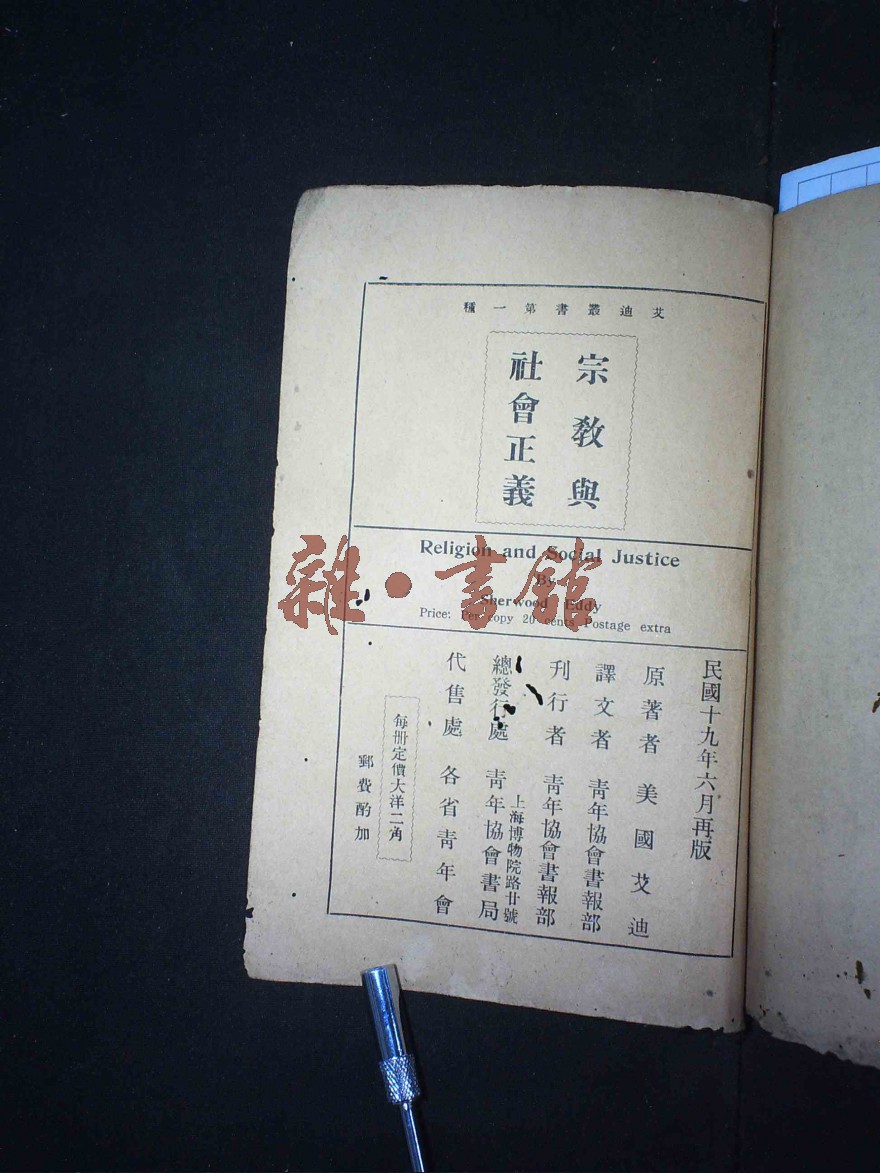 艾迪叢書第一種
宗教與
社會正義
Religion and Social Justice
By
Sherwood Eddy
Price: Per copy 20 cents Postage extra
民國十九年六月再版
原著者 美國艾迪
譯文者 青年協會書報部
刊行者 青年協會書報部
上海博物院路廿號
總發行處 青年協會書局
代售處 各省青年會
每冊定價大洋二角
郵費酌加
雜·書館